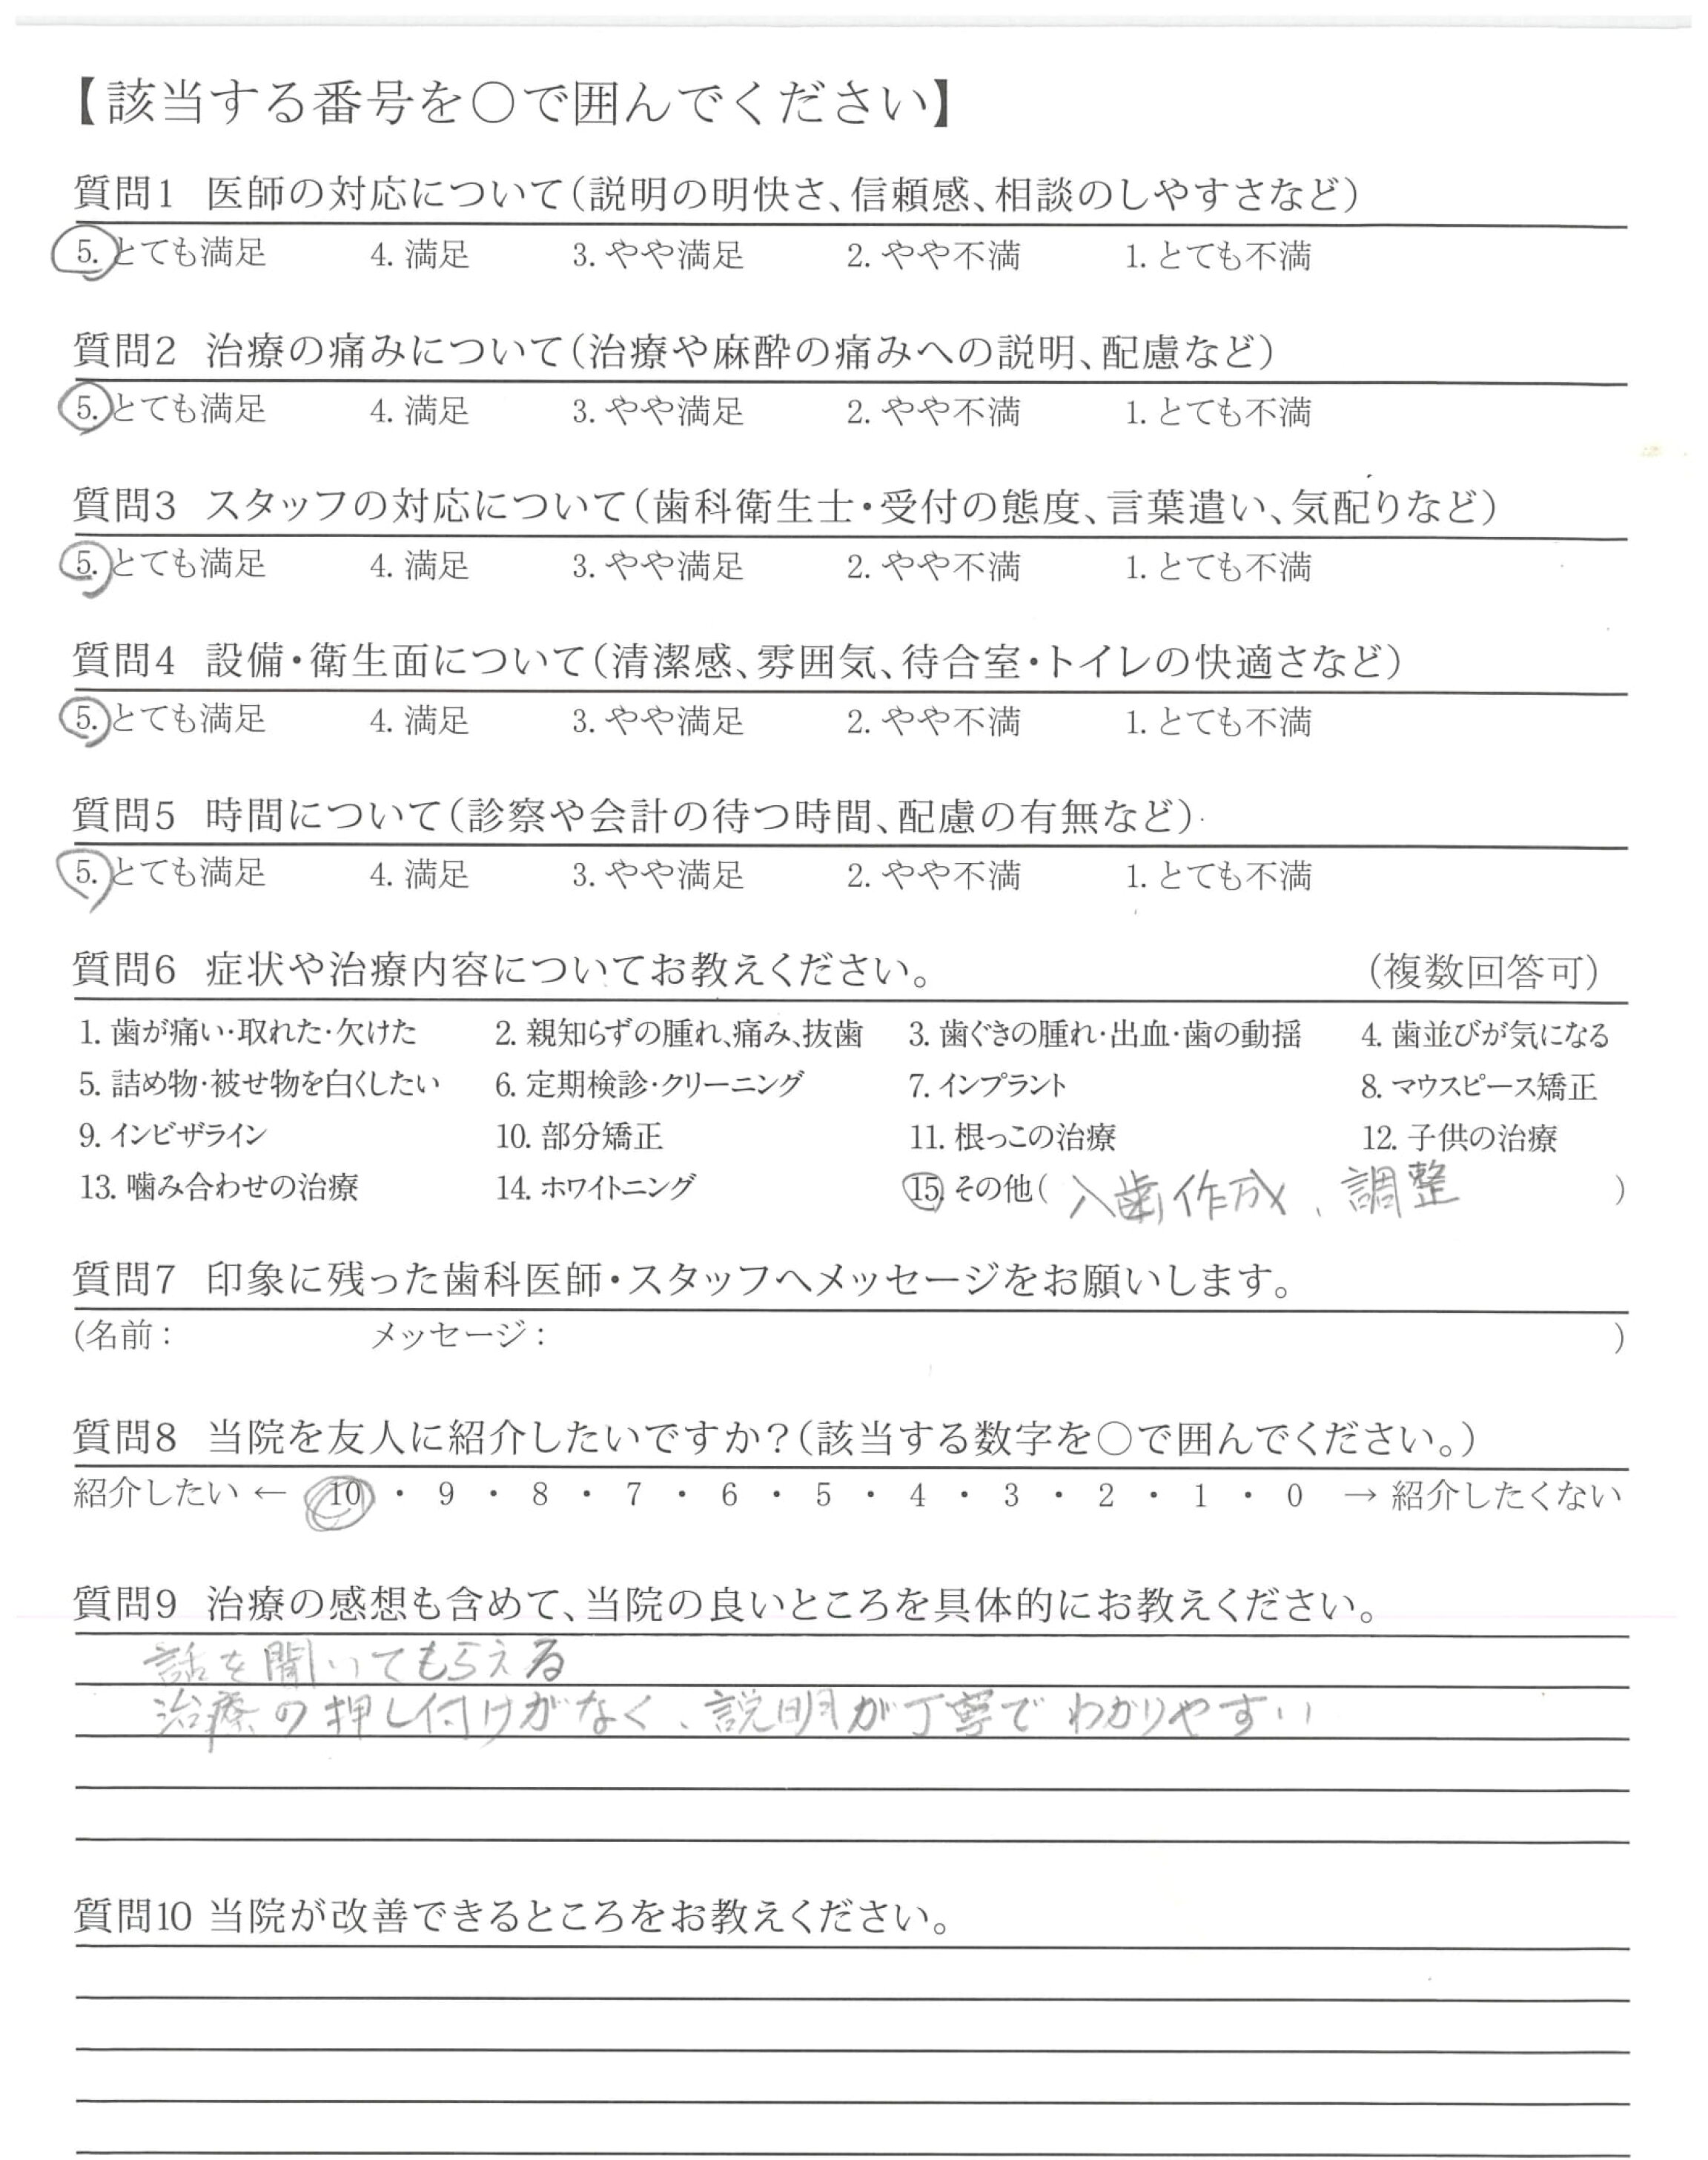 【該当する番号を○で囲んでください】
質問1 医師の対応について(説明の明快さ、信頼感、相談のしやすさなど)
5. とても満足 4. 満足 3. やや満足 2. やや不満 1. とても不満
質問2 治療の痛みについて(治療や麻酔の痛みへの説明、配慮など)
5. とても満足 4. 満足 3. やや満足 2. やや不満 1. とても不満
質問3 スタッフの対応について(歯科衛生士・受付の態度、言葉遣い、気配りなど)
5. とても満足 4. 満足 3. やや満足 2. やや不満 1. とても不満
質問4 設備・衛生面について(清潔感、雰囲気、待合室・トイレの快適さなど)
5. とても満足 4. 満足 3. やや満足 2. やや不満 1. とても不満
質問5 時間について(診察や会計の待つ時間、配慮の有無など)
5. とても満足 4. 満足 3. やや満足 2. やや不満 1. とても不満
質問6 症状や治療内容についてお教えください。 (複数回答可)
1. 歯が痛い・取れた・欠けた 2. 親知らずの腫れ、痛み、抜歯 3. 歯ぐきの腫れ・出血・歯の動揺 4. 歯並びが気になる
5. 詰め物・被せ物を白くしたい 6. 定期検診・クリーニング 7. インプラント 8. マウスピース矯正
9. インビザライン 10. 部分矯正 11. 根っこの治療 12. 子供の治療
13. 噛み合わせの治療 14. ホワイトニング 15. その他( 入歯作成、調整 )
質問7 印象に残った歯科医師・スタッフへメッセージをお願いします。
(名前: メッセージ: )
質問8 当院を友人に紹介したいですか?(該当する数字を○で囲んでください。)
紹介したい ← 10 ・ 9 ・ 8 ・ 7 ・ 6 ・ 5 ・ 4 ・ 3 ・ 2 ・ 1 ・ 0 → 紹介したくない
質問9 治療の感想も含めて、当院の良いところを具体的にお教えください。
話を聞いてもらえる
治療の押し付けがなく、説明が丁寧でわかりやすい
質問10 当院が改善できるところをお教えください。